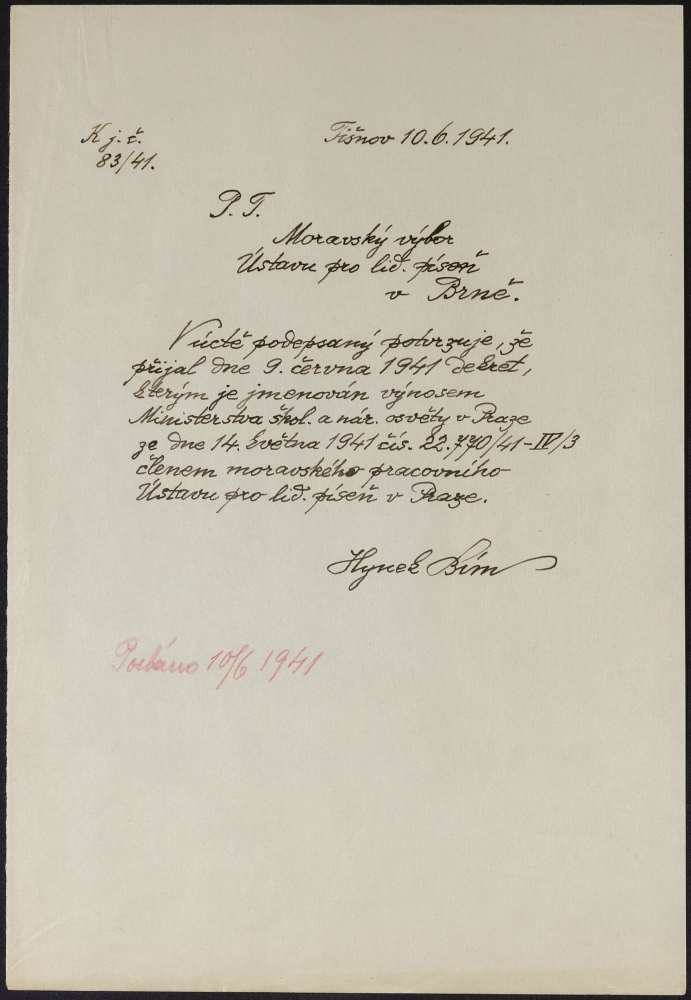 K j. č.
83/41.
Tišnov 10.6.1941.
P. T.
Moravský výbor
Ústavu pro lid. píseň
v Brně.
V úctě podepsaný potvrzuje, že
přijal dne 9. června 1941 dekret,
kterým je jmenován výnosem
Ministerstva škol. a nár. osvěty v Praze
ze dne 14. května 1941 čís. 22.770/41-IV/3
členem moravského pracovního
Ústavu pro lid. píseň v Praze.
Hynek Bím
Posláno 10/6 1941